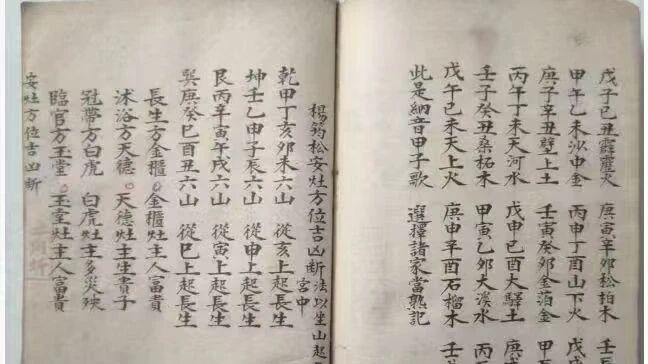 戊子己丑霹靂火 庚寅辛卯松柏木 壬
甲午乙未沙中金 丙申丁酉山下火 戊
庚子辛丑壁上土 壬寅癸卯金箔金
丙午丁未天河水 戊申己酉大驛土
壬子癸丑桑柘木 甲寅乙卯大溪水
戊午己未天上火 庚申辛酉石榴木
此是納音甲子歌 選擇諸家當熟記
楊筠松安灶方位吉凶斷法以坐山起
宮中
乾甲丁亥卯未六山 從亥上起長生
坤壬乙申子辰六山 從申上起長生
艮丙辛寅午戌六山 從寅上起長生
巽庚癸巳酉丑六山 從巳上起長生
長生方金櫃。金櫃灶主人富貴
沐浴方天德。天德灶主生貴子
冠帶方白虎 白虎灶主多災殃
臨官方玉堂。玉堂灶主人富貴
安灶方位吉凶斷